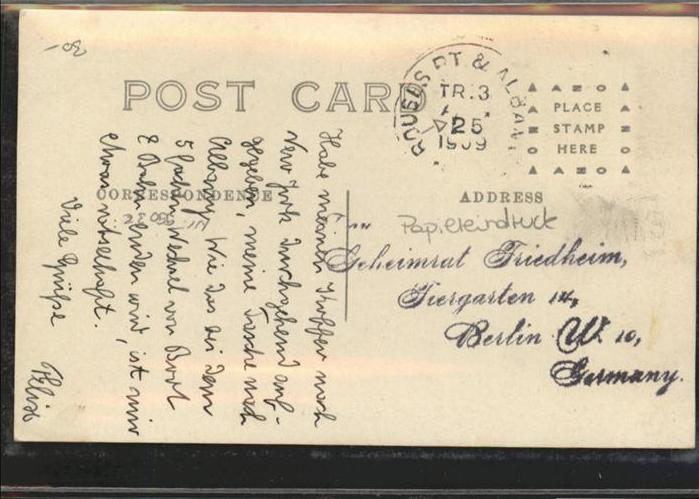 30-
POST CARD
ROUSES PT. & ALBANY
TR.3
25
1909
AZO
PLACE
STAMP
HERE
AZO
CORRESPONDENCE
ADDRESS
Papiereindruck
Geheimrat Friedheim,
Tiergarten
Berlin W. 10,
Germany.
Habe meinen Koffer nach
New York durchgehend auf-
gegeben, meine Tasche nach
Albany. Wie das bei dem
5 fachen Wechsel von Boot
& Bahn enden wird, ist mir
etwas rätselhaft.
Viele Grüße